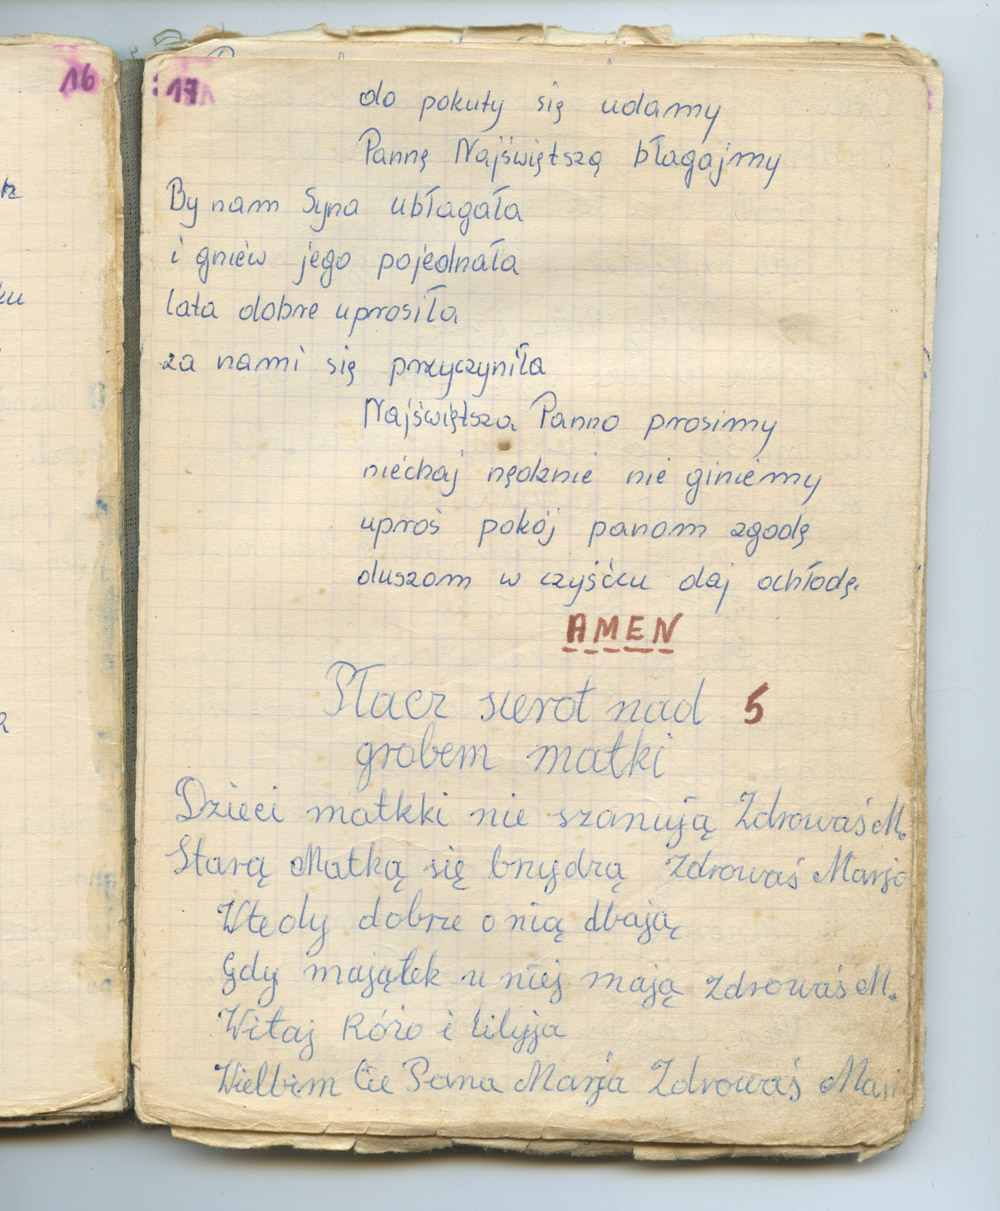 16
17
do pokuty się udamy
Pannę Najświętszą błagajmy
By nam Syna ubłagała
i gniew jego pojednała
lata dobre uprosiła
za nami się przyczyniła
Najświętsza Panno prosimy
niechaj nędznie nie giniemy
uproś pokój panom zgodę
duszom w czyśćcu daj ochłodę.
AMEN
Płacz sierot nad 5
grobem matki
Dzieci matkki nie szanują Zdrowaś M.
Starą Matką się brzydzą Zdrowaś Marjo
Wtedy dobrze o nią dbają
Gdy majątek u niej mają Zdrowaś M.
Witaj Różo i Lilyja
Wielbim Cie Pana Marja Zdrowaś